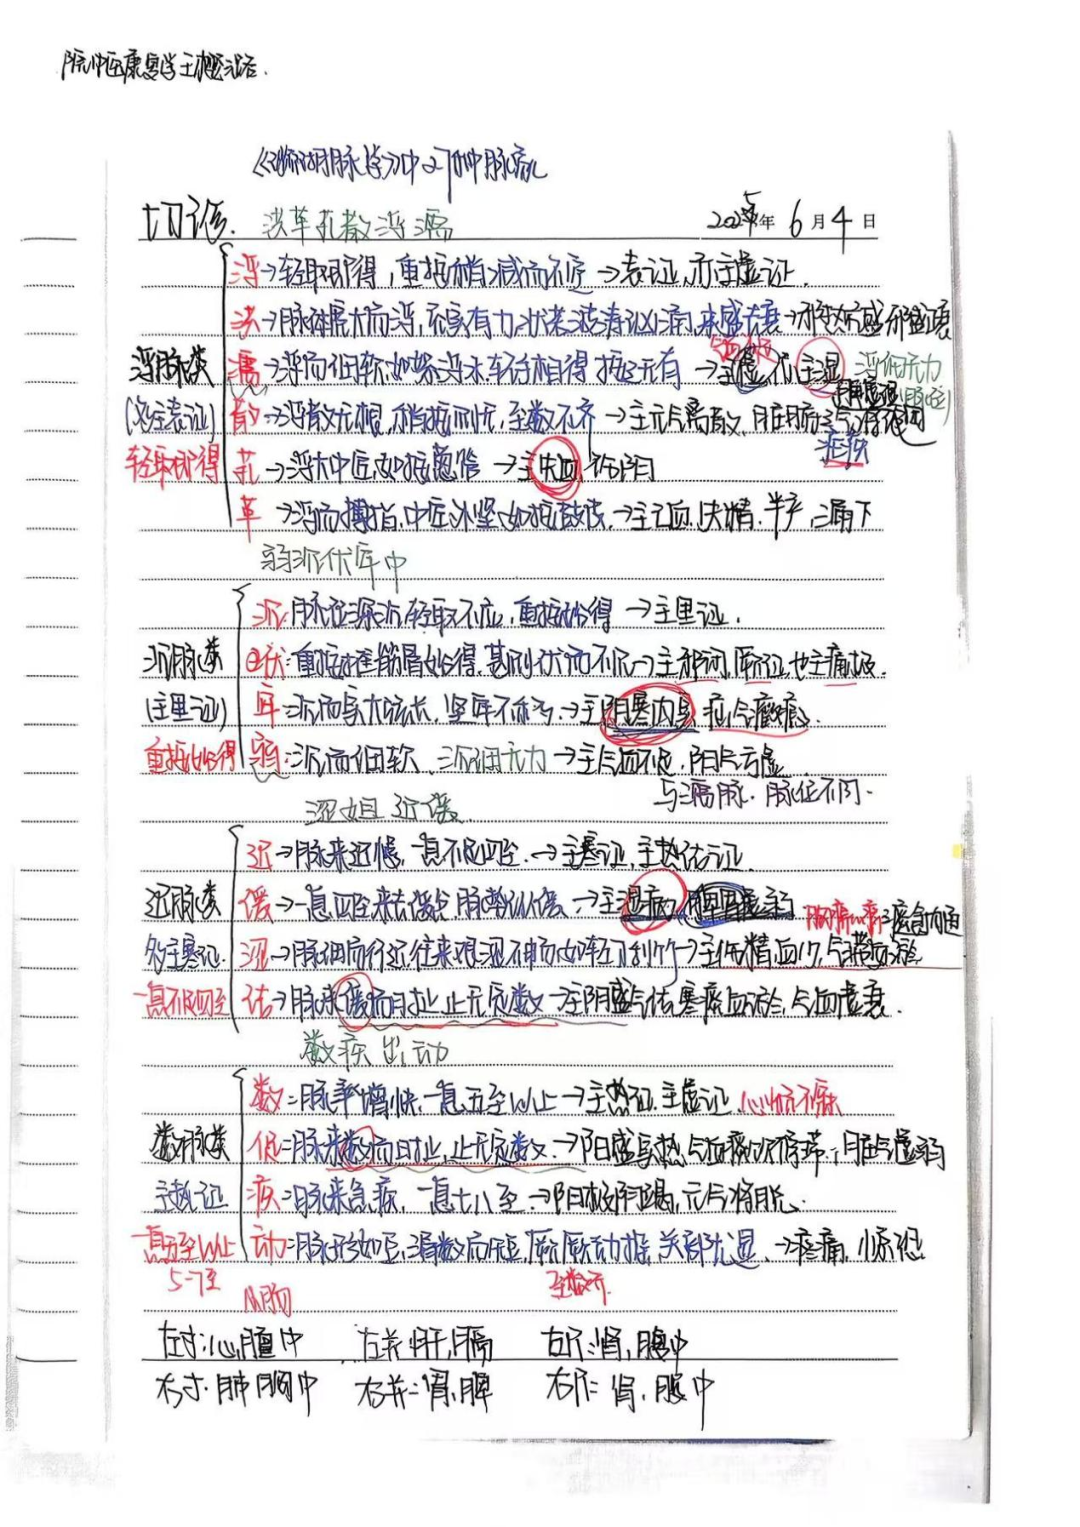 《濒湖脉学》中27种脉象
切诊. 洪革芤散浮濡 2025年6月4日
浮→轻取即得,重按稍减而不空→表证,亦主虚证.
洪→脉体宽大而浮,充实有力,状若波涛汹涌,来盛去衰→
浮脉类 濡→浮而细软,如絮浮水,轻手相得,按之无有→主虚,亦主湿 浮细无力
(多主表证) 散→浮散无根,稍按则无,至数不齐→主元气离散,
轻取即得 芤→浮大中空,如按葱管→主失血,伤阴
革→浮而搏指,中空外坚,如按鼓皮→主亡血,失精,半产,漏下
弱沉伏牢中
沉:脉位深沉,轻取不应,重按始得→主里证.
沉脉类 伏:重按推筋骨始得,甚则伏而不见→主邪闭,厥证,也主痛极.
(主里证) 牢:沉而实大弦长,坚牢不移→主阴寒内实,疝气癥瘕.
重按始得 弱:沉而细软,沉细无力→主气血不足,阳气亏虚
与濡脉.脉位不同.
迟→脉来迟慢,一息不足四至.→主寒证,主热结证.
迟脉类 缓→一息四至,来去缓怠,脉势纵缓→主湿病,脾胃虚弱
多主寒证. 涩→脉细而行迟,往来艰涩不畅,如轻刀刮竹→主伤精血少,气滞血瘀
一息不足四至 结→脉来缓而时止,止无定数→主阴盛气结,寒痰血瘀,气血虚衰.
数疾 动
数=脉率增快,一息五至以上→主热证,主虚证,
数脉类 促=脉来数而时止,止无定数.→阳盛实热,
主热证 疾=脉来急疾,一息七八至.→阳极阴竭,元气将脱.
一息五至以上 动=脉形如豆,滑数而短,厥厥动摇,关部尤显.→疼痛,惊恐
5-7至
左寸:心,膻中 左关:肝,膈 左尺:肾,腹中
右寸.肺,胸中 右关:胃,脾 右尺=肾.腹中